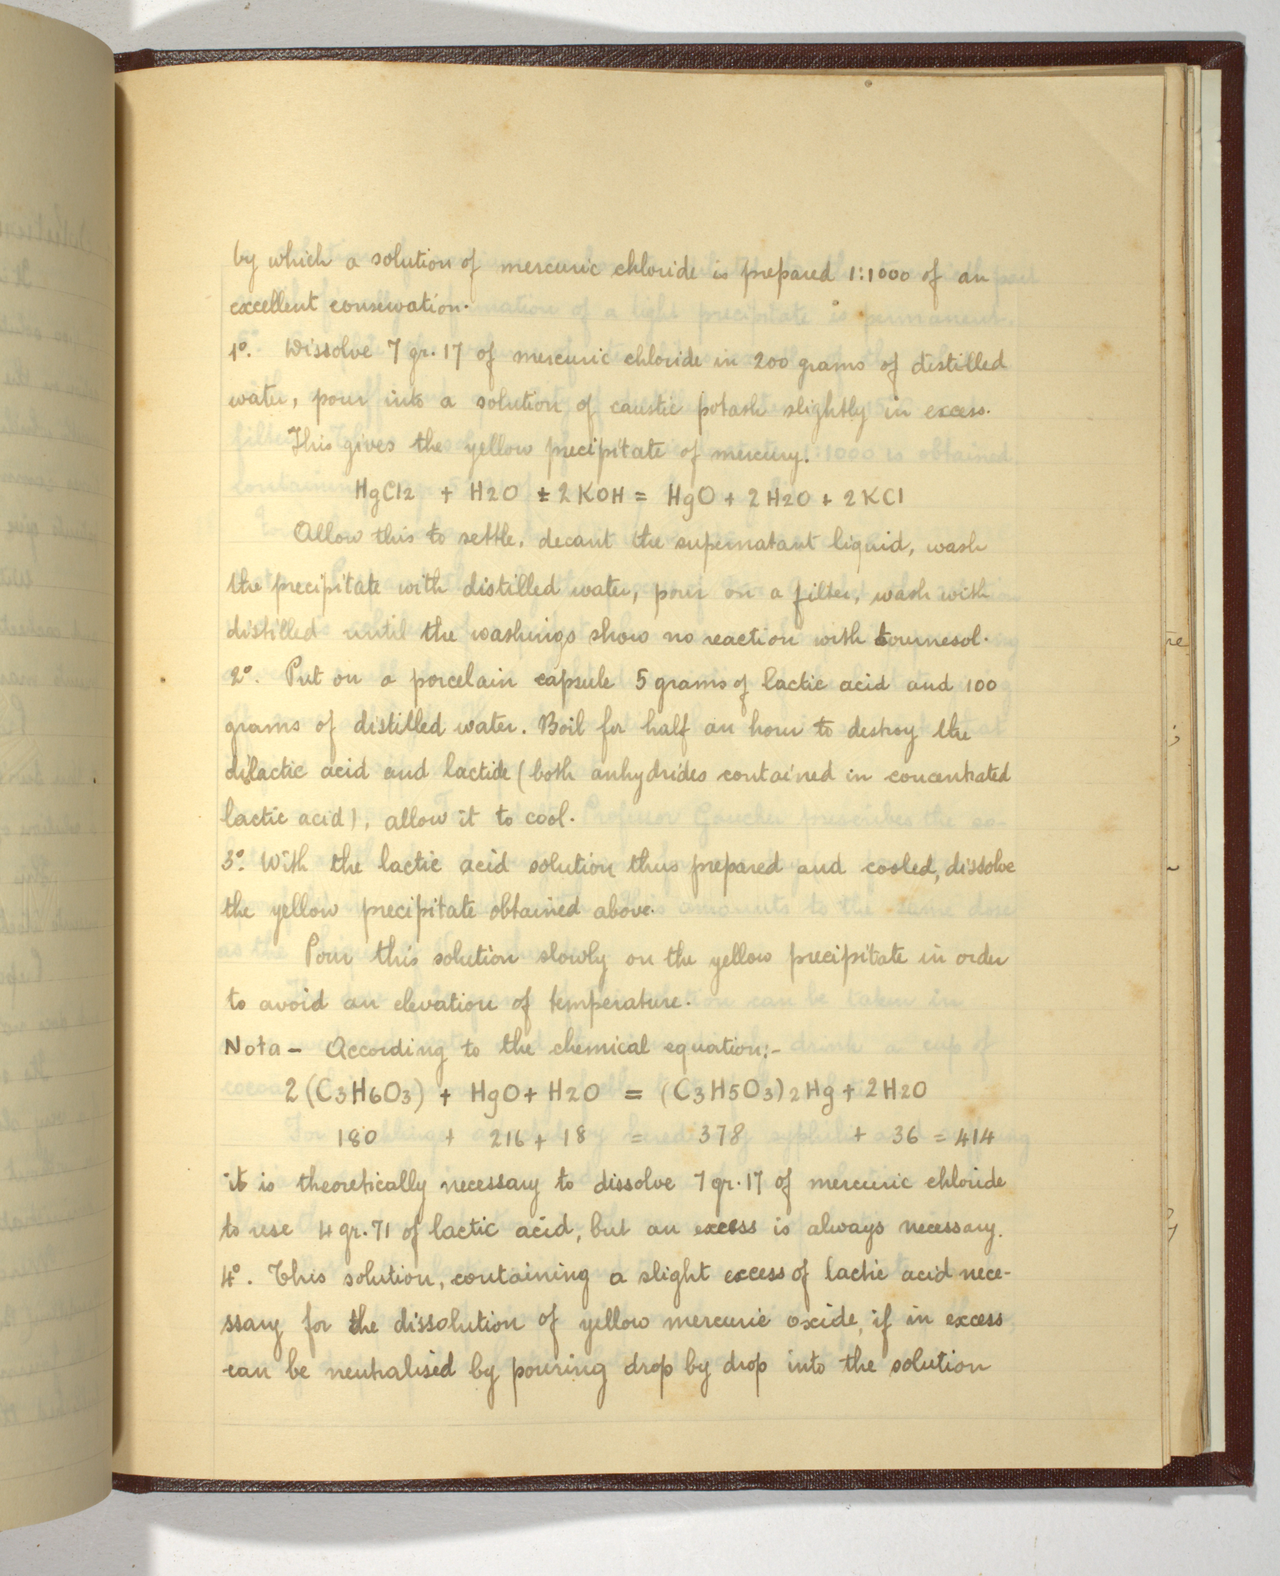 by which a solution of mercuric chloride is prepared 1:1000 of an
excellent conservation.
1º. Dissolve 7 gr. 17 of mercuric chloride in 200 grams of distilled
water, pour into a solution of caustic potash slightly in excess.
This gives the yellow precipitate of mercury.
HgCl2 + H2O + 2KOH = HgO + 2H2O + 2KCl
Allow this to settle, decant the supernatant liquid, wash
the precipitate with distilled water, pour on a filter, wash with
distilled until the washings show no reaction with tournesol.
2º. Put on a porcelain capsule 5 grams of lactic acid and 100
grams of distilled water. Boil for half an hour to destroy the
dilactic acid and lactide (both anhydrides contained in concentrated
lactic acid), allow it to cool.
3º. With the lactic acid solution thus prepared and cooled, dissolve
the yellow precipitate obtained above.
Pour this solution slowly on the yellow precipitate in order
to avoid an elevation of temperature.
Nota - According to the chemical equation:-
2 (C3H6O3) + HgO + H2O = (C3H5O3)2Hg + 2H2O
180 + 216 + 18 = 378 + 36 = 414
it is theoretically necessary to dissolve 7 gr. 17 of mercuric chloride
to use 4 gr. 71 of lactic acid, but an excess is always necessary.
4º. This solution, containing a slight excess of lactic acid nece-
ssary for the dissolution of yellow mercuric oxide, if in excess
can be neutralised by pouring drop by drop into the solution